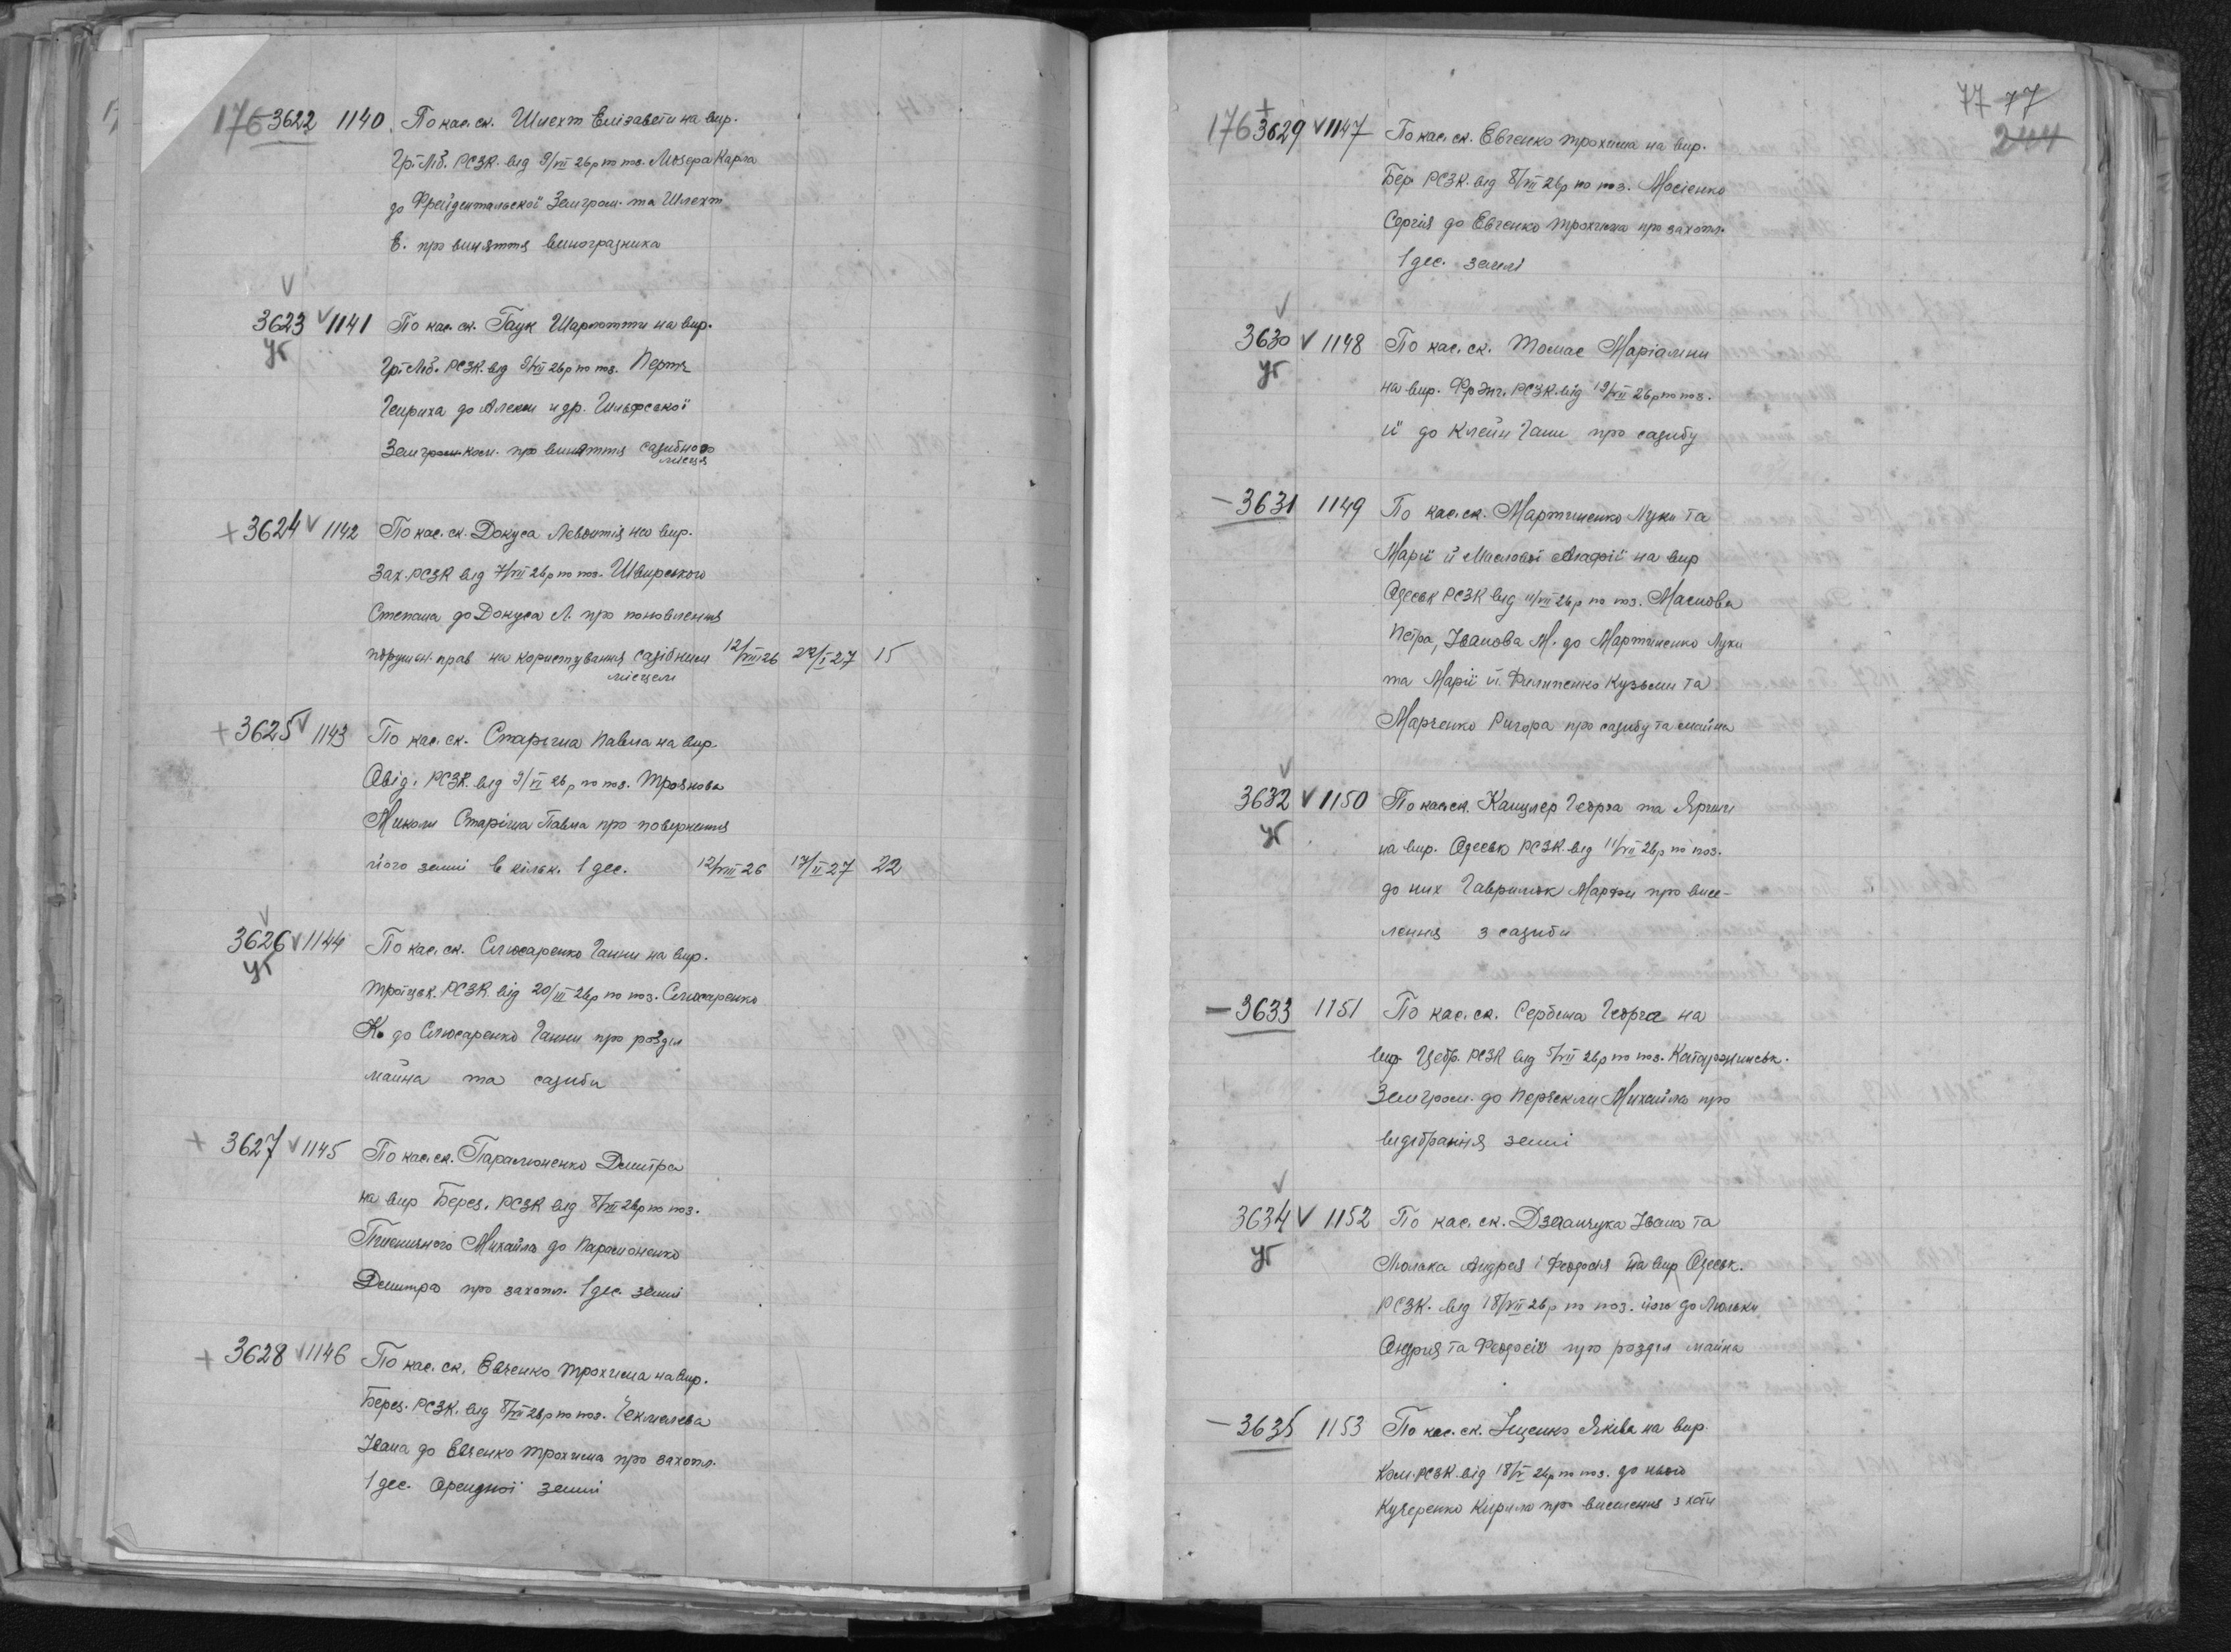 176 3622 1140 По кас. ск. Шлехт Елізавети на вир.
Гр.-Лб. РСЗК. від 9/VII 26р по поз. Мозера Карла
до ФрейдентальськоїЗемгром. та Шлехт
Е. про виляття виноградника
3623 V 1141 По кас. ск. Гаук Шарлотти на вир.
УГ
Гр.-Лб. РСЗК. від 9/VII 26р по поз.
Генриха до и др.
Земгром. ком. про виляття садибного
місця
+ 3624 V 1142 По кас. ск. Докуса Левонтія на вир.
Зах. РСЗК від 7/VII 26р по поз. Швирського
Степана до Докуса Л. про поновлення
порушен. прав на користування садібним 12/VIII 26 22/I 27 15
місцем
+ 3625 V 1143 По кас. ск. Старіша Павла на вир.
Овід. РСЗК. від 9/VI 26р по поз. Троянова
Миколи Старіша Павла про повернення
його землі в кільк. 1 дес. 12/VIII 26 17/II 27 22
3626 V 1144 По кас. ск. Слюсаренко Ганни на вир.
УГ
Троїцьк. РСЗК від 20/III 26р по поз. Слюсаренко
К. до Слюсаренко Ганни про розділ
майна та садиби
+ 3627 V 1145 По кас. ск. Паралюненко Дмитра
на вир Берез. РСЗК від 8/VII 26р по поз.
Пшеничного Михайла до
Дмитра про захопл. 1 дес. землі
+ 3628 V 1146 По кас. ск. Евченко Трохима на вир.
Берез. РСЗК. від 8/VII 26р по поз. Чекмельова
Івана до Евченко Трохима про захопл.
1 дес. орендної землі
77 77
244
176 + 3629 V 1147 По кас. ск. Евченко Трохима на вир.
Бер. РСЗК. від 8/VII 26р по поз. Мосіенко
Сергія до Евченко Трохима про захопл.
1 дес. землі
3630 V 1148 По кас. ск. Томас Маріанни
УГ
на вир. РСЗК. від 19/VII 26р по поз.
її до Клейн Гани про садибу
– 3631 1149 По кас. ск. Мартиненко Луки та
Марії й Маслової Агафії на вир
Одеськ РСЗК від 11/VII 26р по поз. Маслова
Петра, Іванова М. до Мартиненко Луки
та Марії й Филипенко Кузьми та
Марченко Ригора про садибу та майна
3632 V 1150 По кас. ск. Канцлер Георга та
УГ
на вир. Одеськ РСЗК. від 11/VII 26р по поз.
до них Гаврилюк Марфи про висе-
лення з садиби
– 3633 1151 По кас. ск. Сербина Георга на
вир. Цебр. РСЗК від 5/VII 26р по поз. Катаржинськ.
Земгром. до Михайла про
відібрання землі
3634 V 1152 По кас. ск. Дземанчука Івана та
УГ
Люлька Андрея і Феодосія на вир Одеськ.
РСЗК. від 18/VII 26р по поз. його до Люльки
Андрія та Феодосії про розділ майна
– 3635 1153 По кас. ск. Іщенко Яківа на вир.
Ком. РСЗК від 18/V 26р по поз. до нього
Кучеренко Кирила про виселення з хати